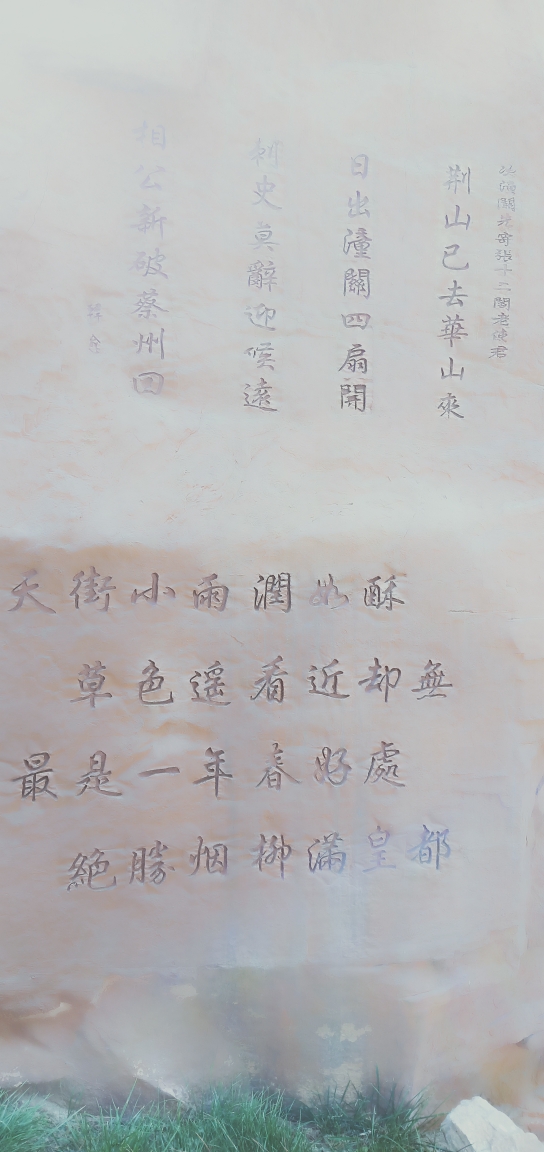 次潼關先寄張十二閣老使君
荆山已去華山來
日出潼關四扇開
刺史莫辭迎候遠
相公新破蔡州回
韓愈
天街小雨潤如酥
草色遥看近却無
最是一年春好處
絶勝烟柳滿皇都